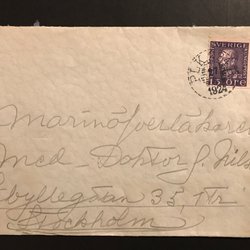 SVERIGE
15 ÖRE
1924
Marinöverläkaren
Med Doktor G. Nils
byllegatan 35, 1 tr
Stockholm